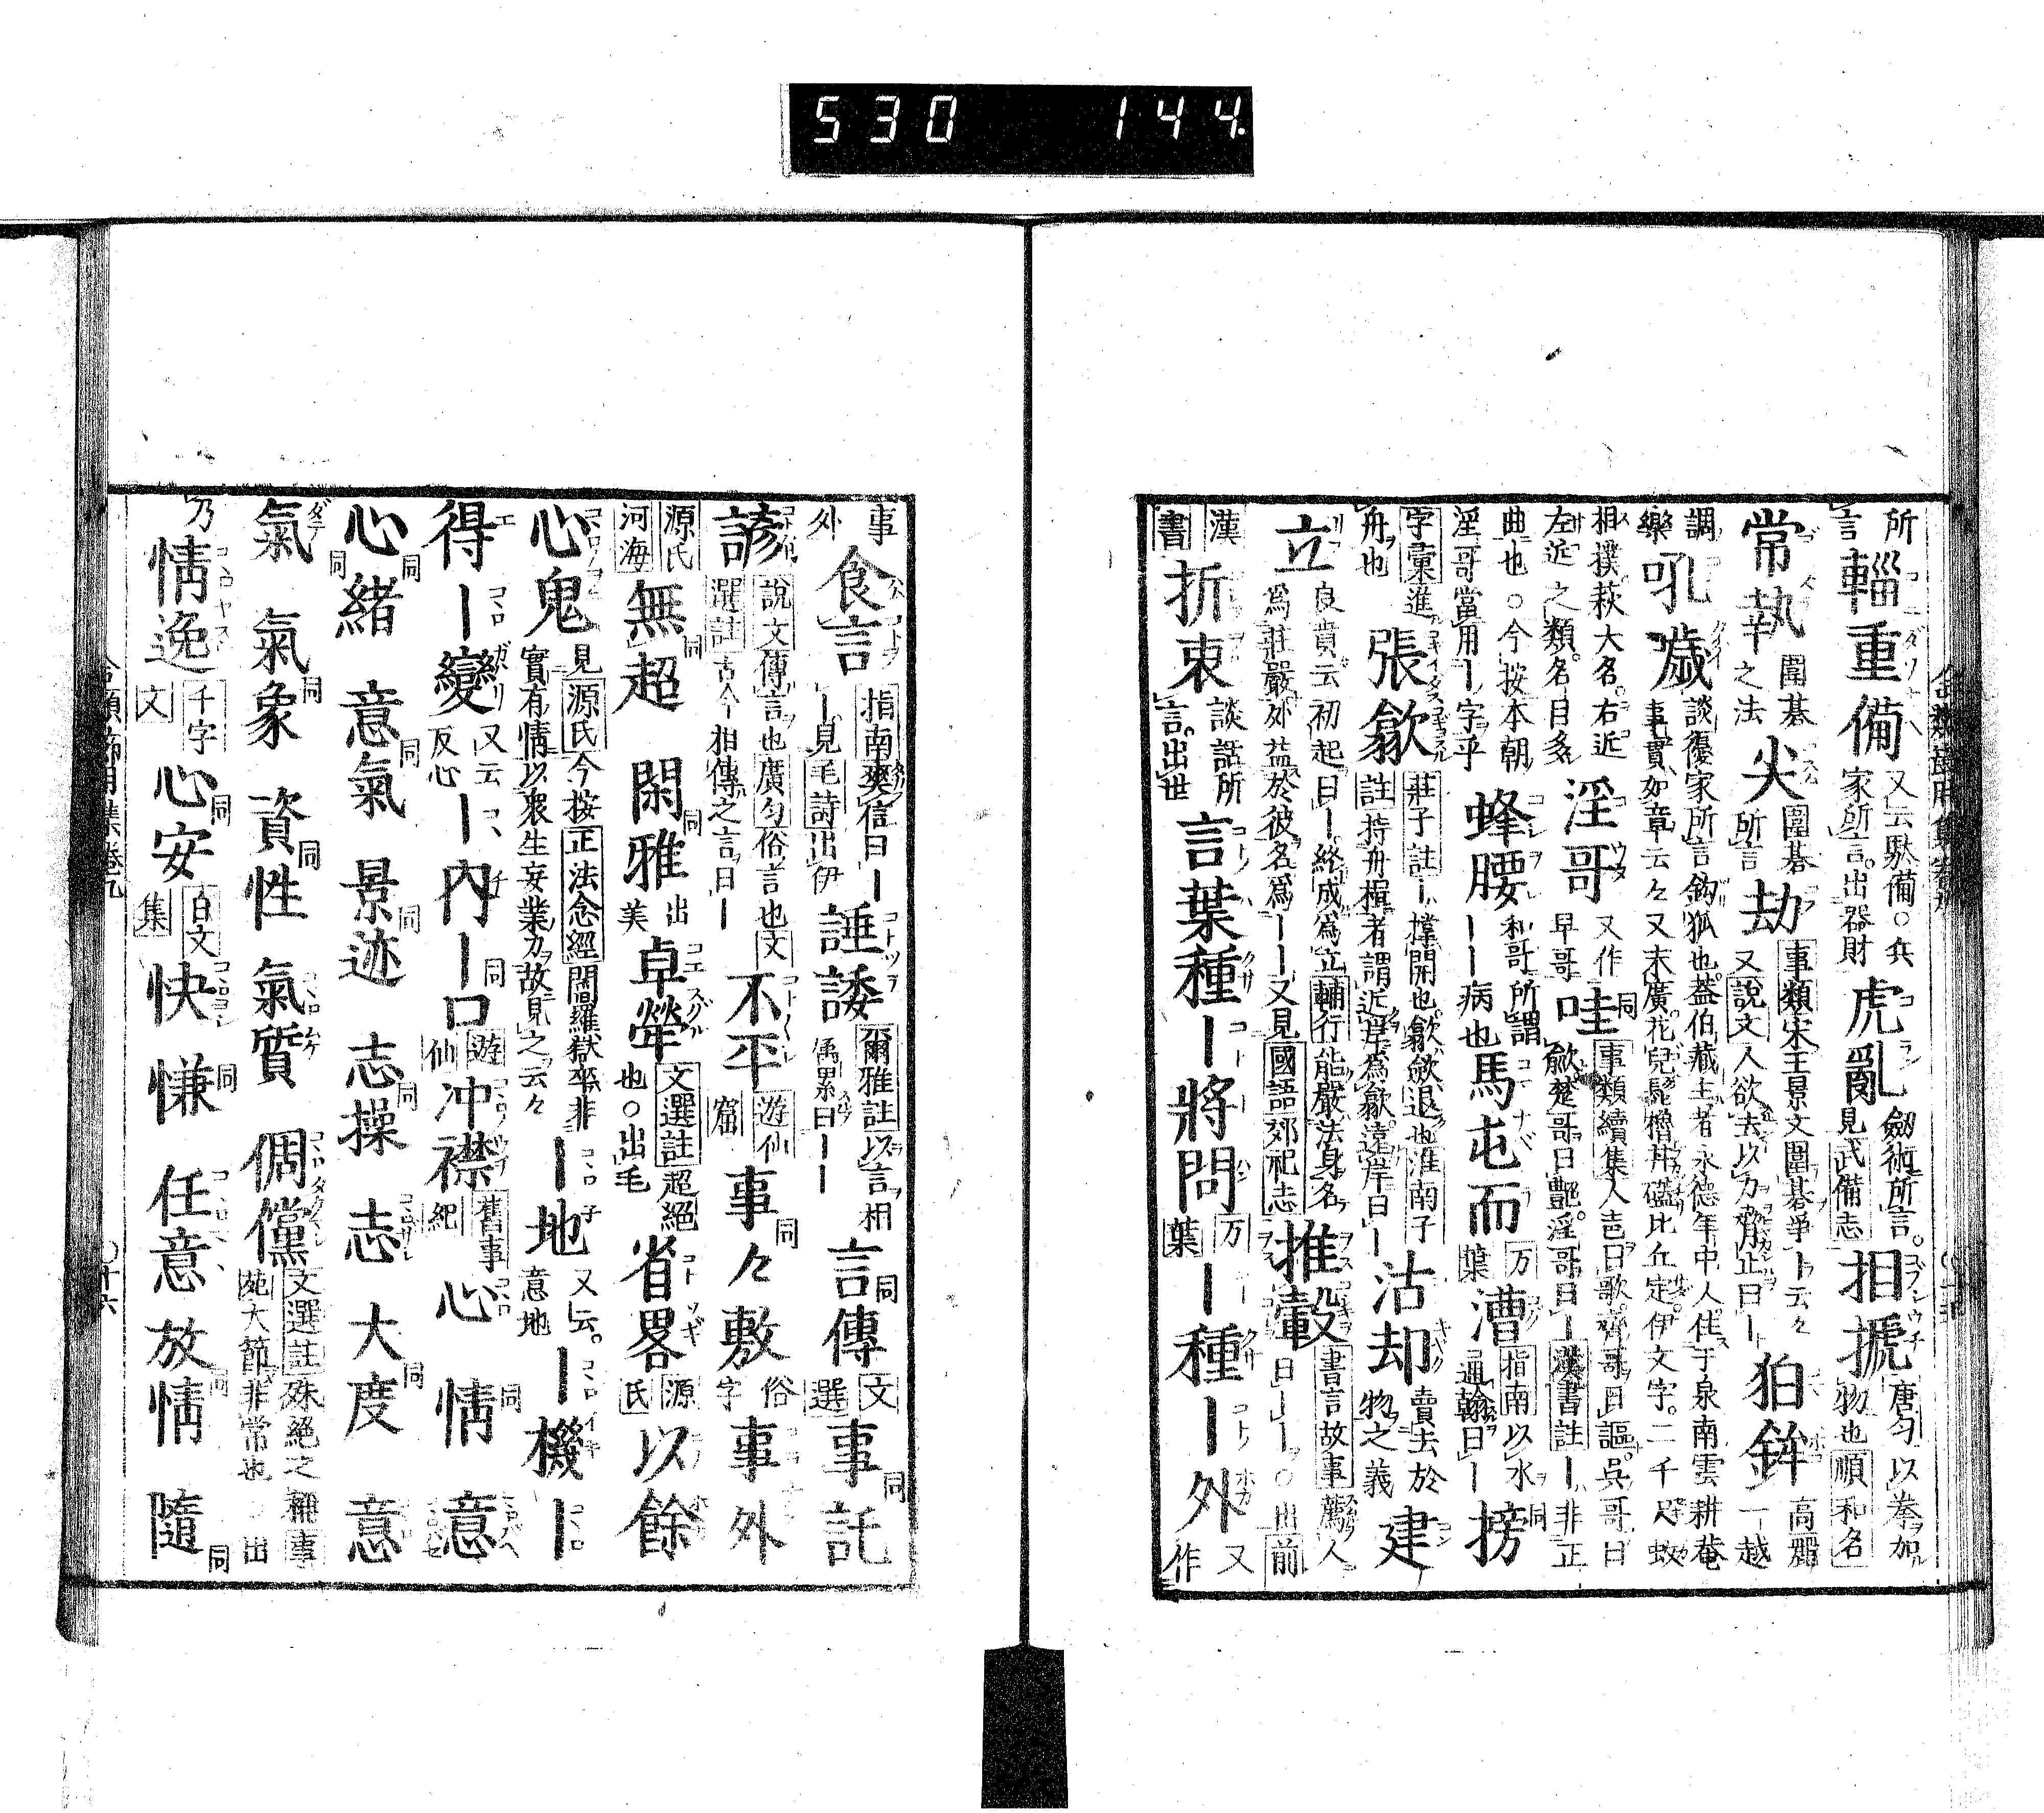 530 144
所言 輜重備 又云駄備○兵家所言出器財 虎亂 劔術所言見武備志 相搋 唐匀以拳加物也順和名
常執 圍碁之法 尖 圍碁所言 劫 事類宋王景文圍碁爭ー云々又說文人欲去以力脅止曰ー 狛鉾 高麗一越
調樂 吼噦 談優家所言鈎狐也蓋伯藏主者永德年中人住于泉南雲耕菴事實如章云々又末廣花兒髭櫓丼礚比丘定伊文字二千尺蚊
相撲萩大名右近左近之類名目多 淫哥 又作早哥 哇 事類續集人邑曰歌齊哥曰謳吳哥曰歈楚哥曰艷淫哥曰ー漢書註ー非正
曲也○今按本朝淫哥當用ー字乎 蜂腰 和哥所謂ーー病也 馬屯而 万葉 漕 指南以水通翰曰ー 搒
字彙進舟也 張歙 莊子註ー撑開也歙斂退也淮南子註持舟楫者謂近岸爲歙遠岸曰ー 沽却 賣去於物之義 建
立 良賁云初起曰ー終成爲立輔行能嚴法身名爲莊嚴外益於彼名爲ーー又見國語郊祀志 推轂 書言故事薦人曰ーー○出前
漢書 折衷 談話所言出世 言葉種 ー將問 万葉 ー種 ー外 又作
事外 食言 指南爽信曰ーー見毛詩出伊 諈諉 爾雅註以言相屬累曰ーー 言傳 文選 事託
諺 說文傳言也廣匀俗言也文選註古今相傳之言曰ー 不平 遊仙窟 事々敷 俗字 事外
源氏河海 無 超 閑雅 出美 卓犖 文選註超絕也○出毛 省畧 源氏 以餘
心鬼 見源氏今按正法念經閻羅獄卒非實有情以衆生妄業力故見之云々 ー地 又云意地 ー機 ー
得 ー變 又云反心 ー內 ー口 遊仙 冲襟 舊事紀 心 情 意
心緒 意氣 景迹 志操 志 大度 意
氣 氣象 資性 氣質 倜儻 文選註殊絕之稱事苑大節非常也 出
乃 情逸 千字文 心安 白文集 快 慊 任意 放情 隨
合類節用集卷九 ○十六